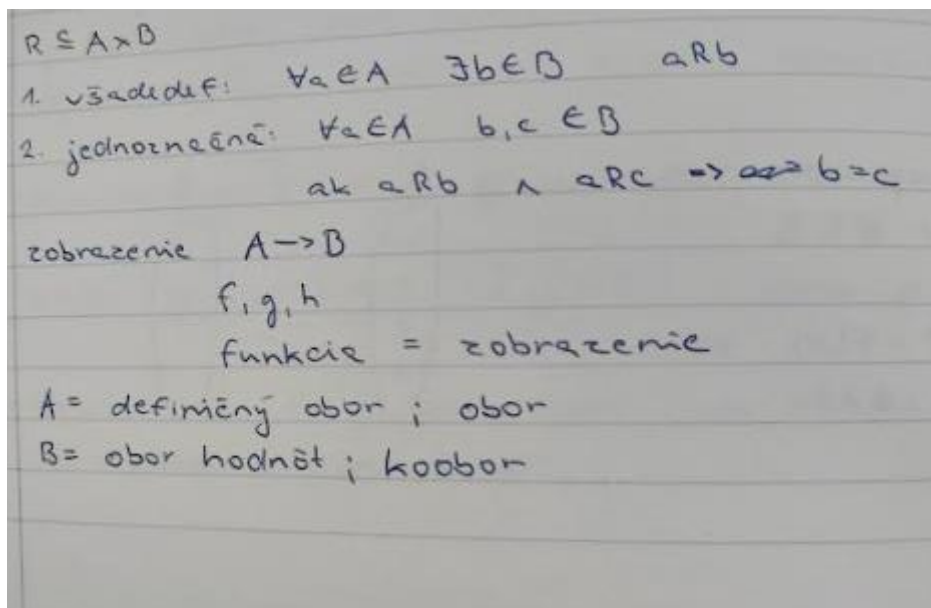 R ⊆ A×B
1. všadedef: ∀a∈A ∃b∈B aRb
2. jednoznačná: ∀a∈A b,c ∈B
ak aRb ∧ aRc => b=c
zobrazenie A->B
f, g, h
funkcia = zobrazenie
A= definičný obor ; obor
B= obor hodnôt ; koobor